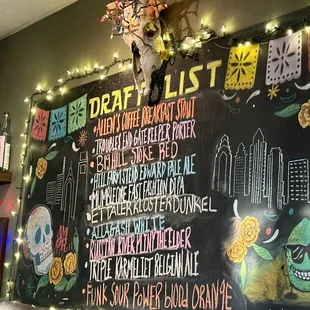 DRAFT LIST
ALLEN'S COFFEE BREAKFAST STOUT
TROUBLES END GATEKEEPER PORTER
SMOKE RED
HILL FARMSTEAD EDWARD PALE ALE
FAST FASHION IPA
ETTALER KLOSTER DUNKEL
ALLAGASH WHITE
RUSSIAN RIVER PLINY THE ELDER
TRIPLE KARMELIET BELGIAN ALE
FUNK SOUR POWER blOOd ORANGE